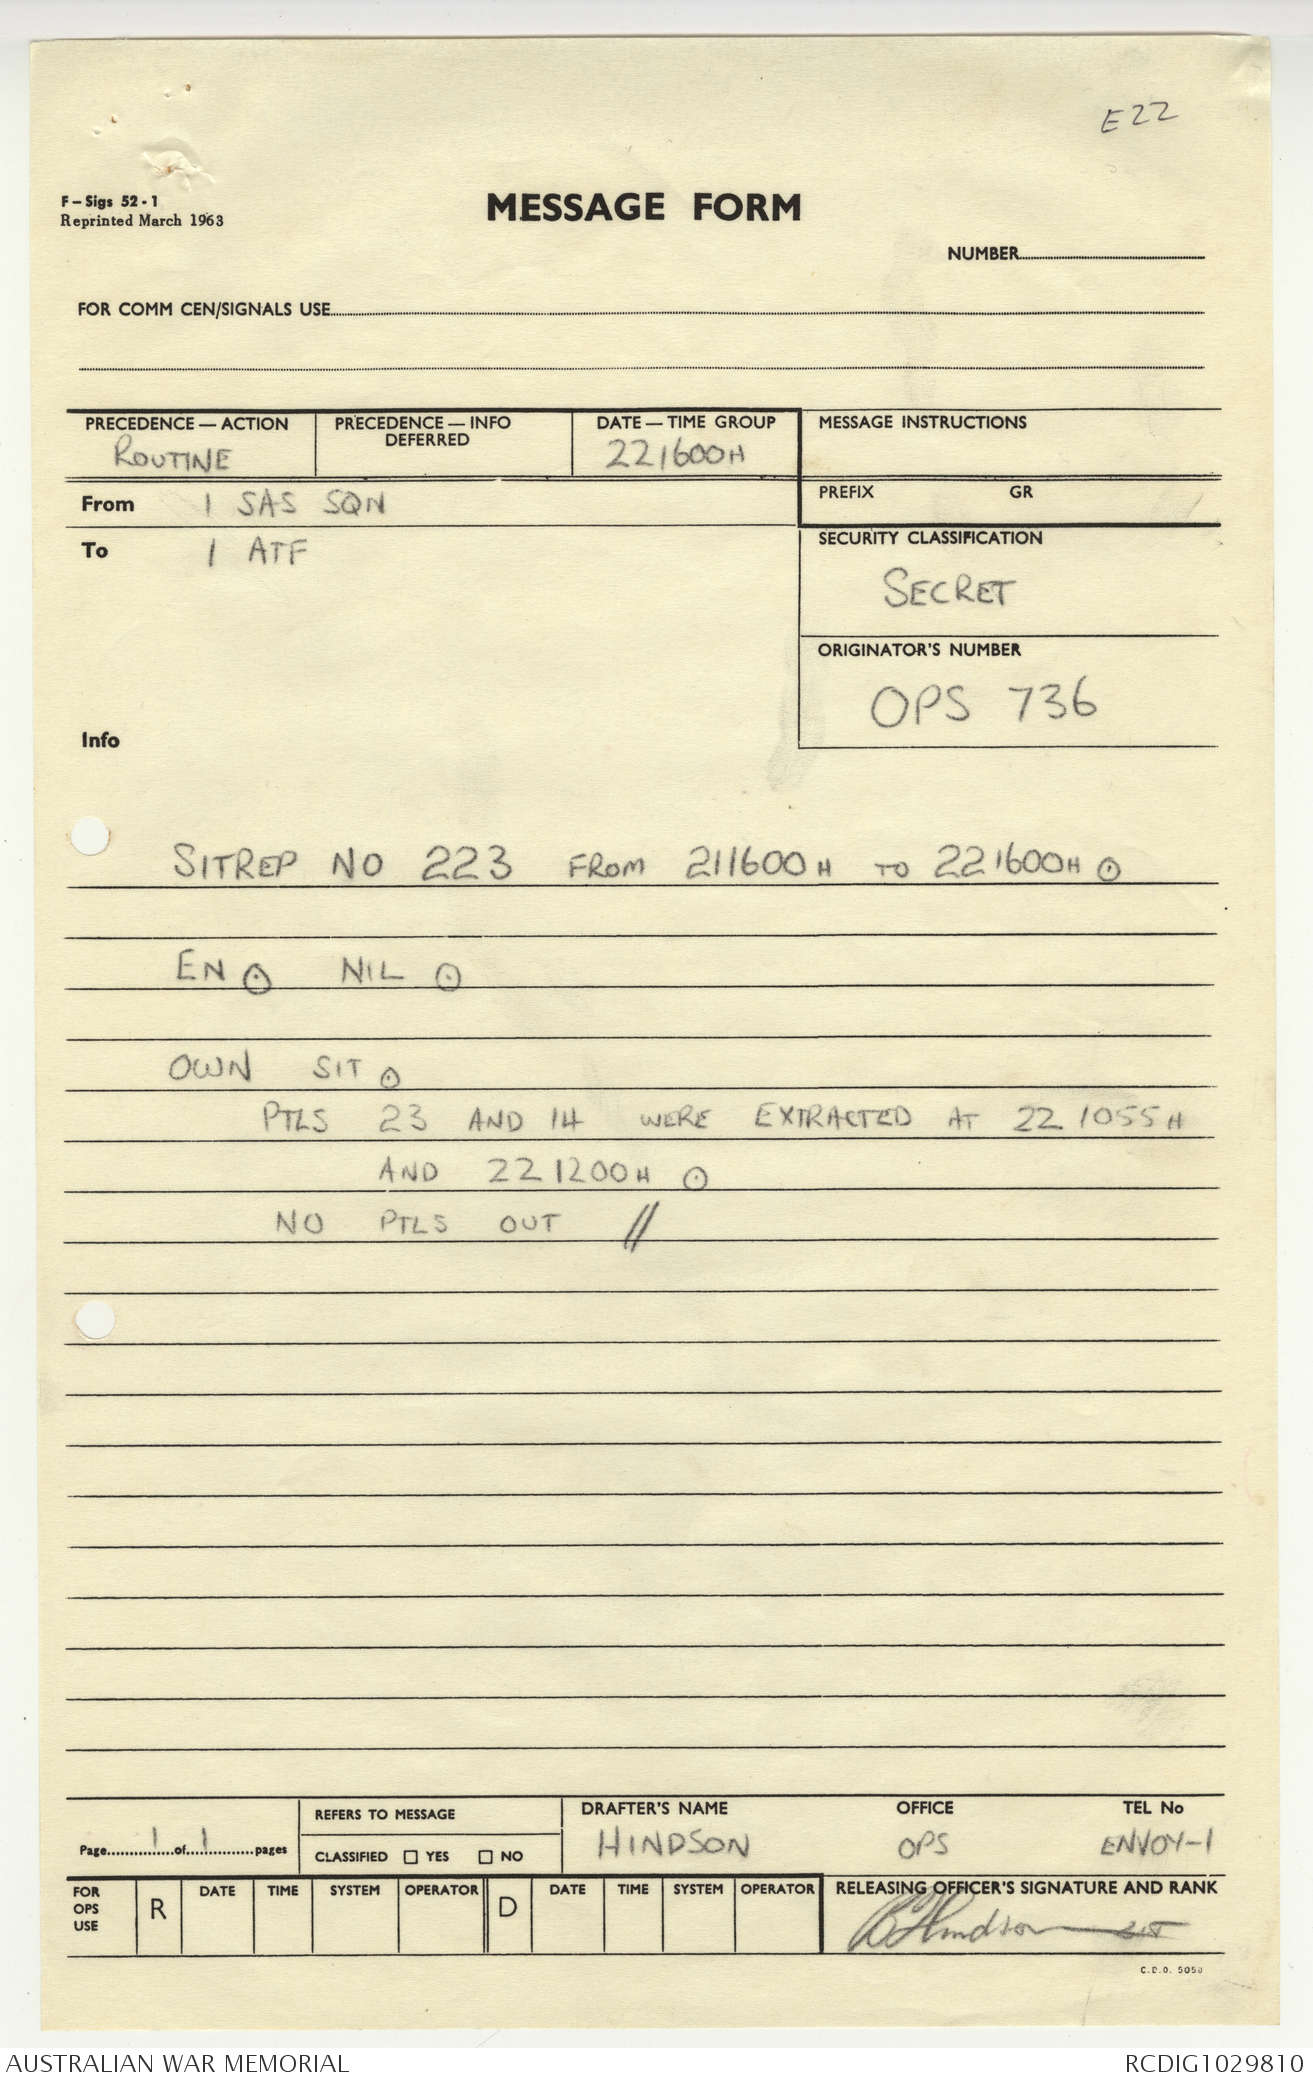 E22
F – Sigs 52 - 1
Reprinted March 1963
MESSAGE FORM
NUMBER
FOR COMM CEN/SIGNALS USE
PRECEDENCE — ACTION
ROUTINE
PRECEDENCE — INFO
DEFERRED
DATE — TIME GROUP
221600H
MESSAGE INSTRUCTIONS
From 1 SAS SQN
PREFIX GR
To 1 ATF
SECURITY CLASSIFICATION
SECRET
ORIGINATOR'S NUMBER
OPS 736
Info
SITREP NO 223 FROM 211600H TO 221600H ⊙
EN ⊙ NIL ⊙
OWN SIT ⊙
PTLS 23 AND 14 WERE EXTRACTED AT 221055H
AND 221200H ⊙
NO PTLS OUT //
Page 1 of 1 pages
REFERS TO MESSAGE
CLASSIFIED ☐ YES ☐ NO
DRAFTER'S NAME OFFICE TEL No
HINDSON OPS ENVOY-1
FOR OPS USE R DATE TIME SYSTEM OPERATOR D DATE TIME SYSTEM OPERATOR
RELEASING OFFICER'S SIGNATURE AND RANK
Hindson
C.D.O. 5050
AUSTRALIAN WAR MEMORIAL RCDIG1029810